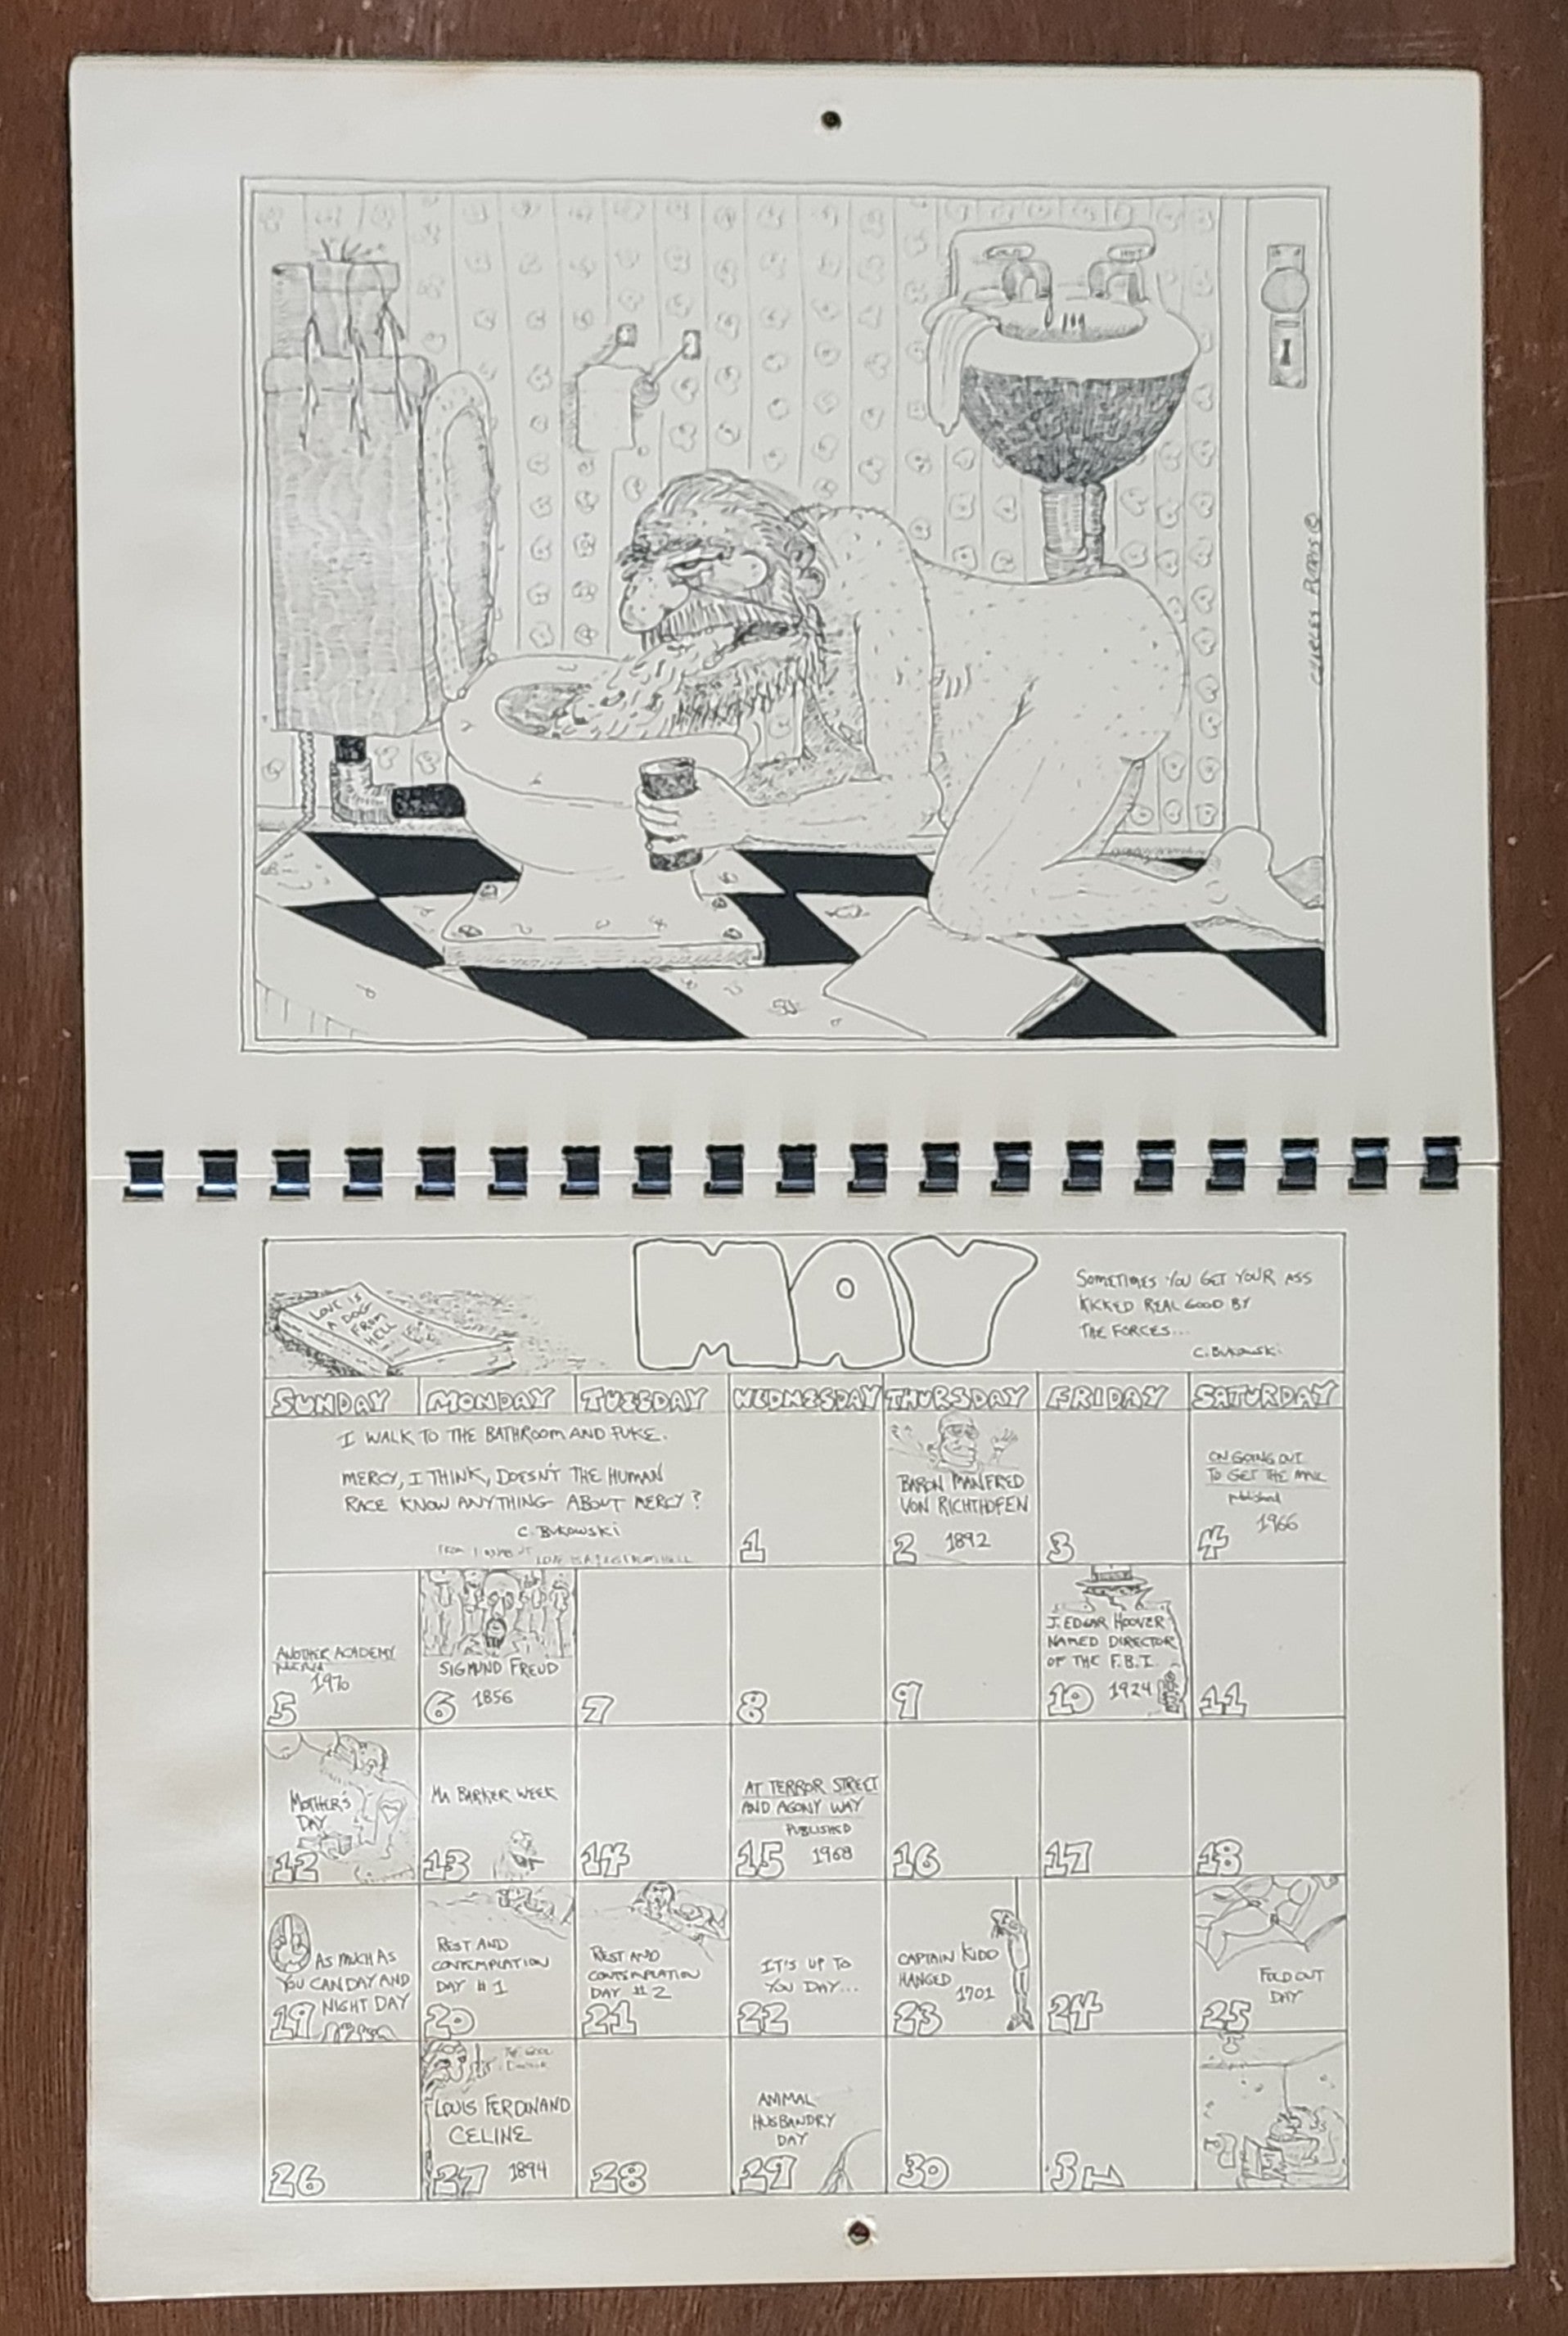 LOVE IS
A DOG
FROM
HELL
MAY
SOMETIMES YOU GET YOUR ASS
KICKED REAL GOOD BY
THE FORCES...
C. BUKOWSKI
SUNDAY MONDAY TUESDAY WEDNESDAY THURSDAY FRIDAY SATURDAY
I WALK TO THE BATHROOM AND PUKE.
MERCY, I THINK, DOESN'T THE HUMAN
RACE KNOW ANYTHING ABOUT MERCY?
C. BUKOWSKI
FROM
1
BARON MANFRED
VON RICHTHOFEN
2 1892
3
ON GOING OUT
TO GET THE MAIL
published
1966
4
ANOTHER ACADEMY
1970
5
SIGMUND FREUD
6 1856
7
8
9
J. EDGAR HOOVER
NAMED DIRECTOR
OF THE F.B.I.
10 1924
11
MOTHER'S
DAY
12
MA BARKER WEEK
13
14
AT TERROR STREET
AND AGONY WAY
PUBLISHED
15 1968
16
17
18
AS MUCH AS
YOU CAN DAY AND
NIGHT DAY
19
REST AND
CONTEMPLATION
DAY #1
20
REST AND
CONTEMPLATION
DAY #2
21
IT'S UP TO
YOU DAY...
22
CAPTAIN KIDD
HANGED
1701
23
24
FOLD OUT
DAY
25
26
THE GOOD
DOCTOR
LOUIS FERDINAND
CELINE
27 1894
28
ANIMAL
HUSBANDRY
DAY
29
30
31